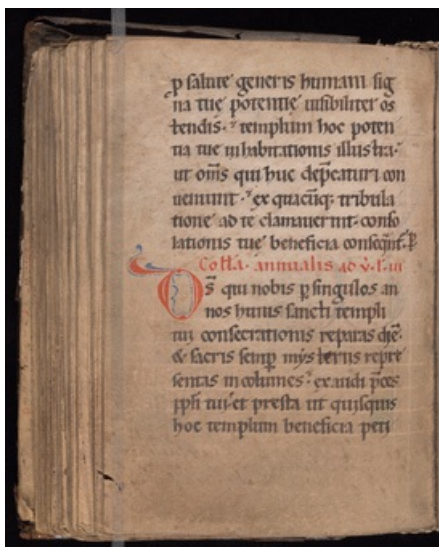 ꝑ salute generis humani sig
na tue potentie uisibiliter os
tendis. ⁊ templum hoc poten
tia tue inhabitationis illustra.
ut om̅s qui huc dep̅caturi con
ueniunt. ⁊ ex quacu̅q; tribula
tione ad te clamauerint. conso
lationis tue beneficia consequa̅t.
Coll̅a. annualis ad
D̅s qui nobis ꝑ singulos an
nos huius sancti templi
tui consecrationis reparas die̅.
& sacris semꝑ mysteriis repre
sentas incolumes. exaudi p̅ces
ppl̅i tui. et presta ut quisquis
hoc templum beneficia peti